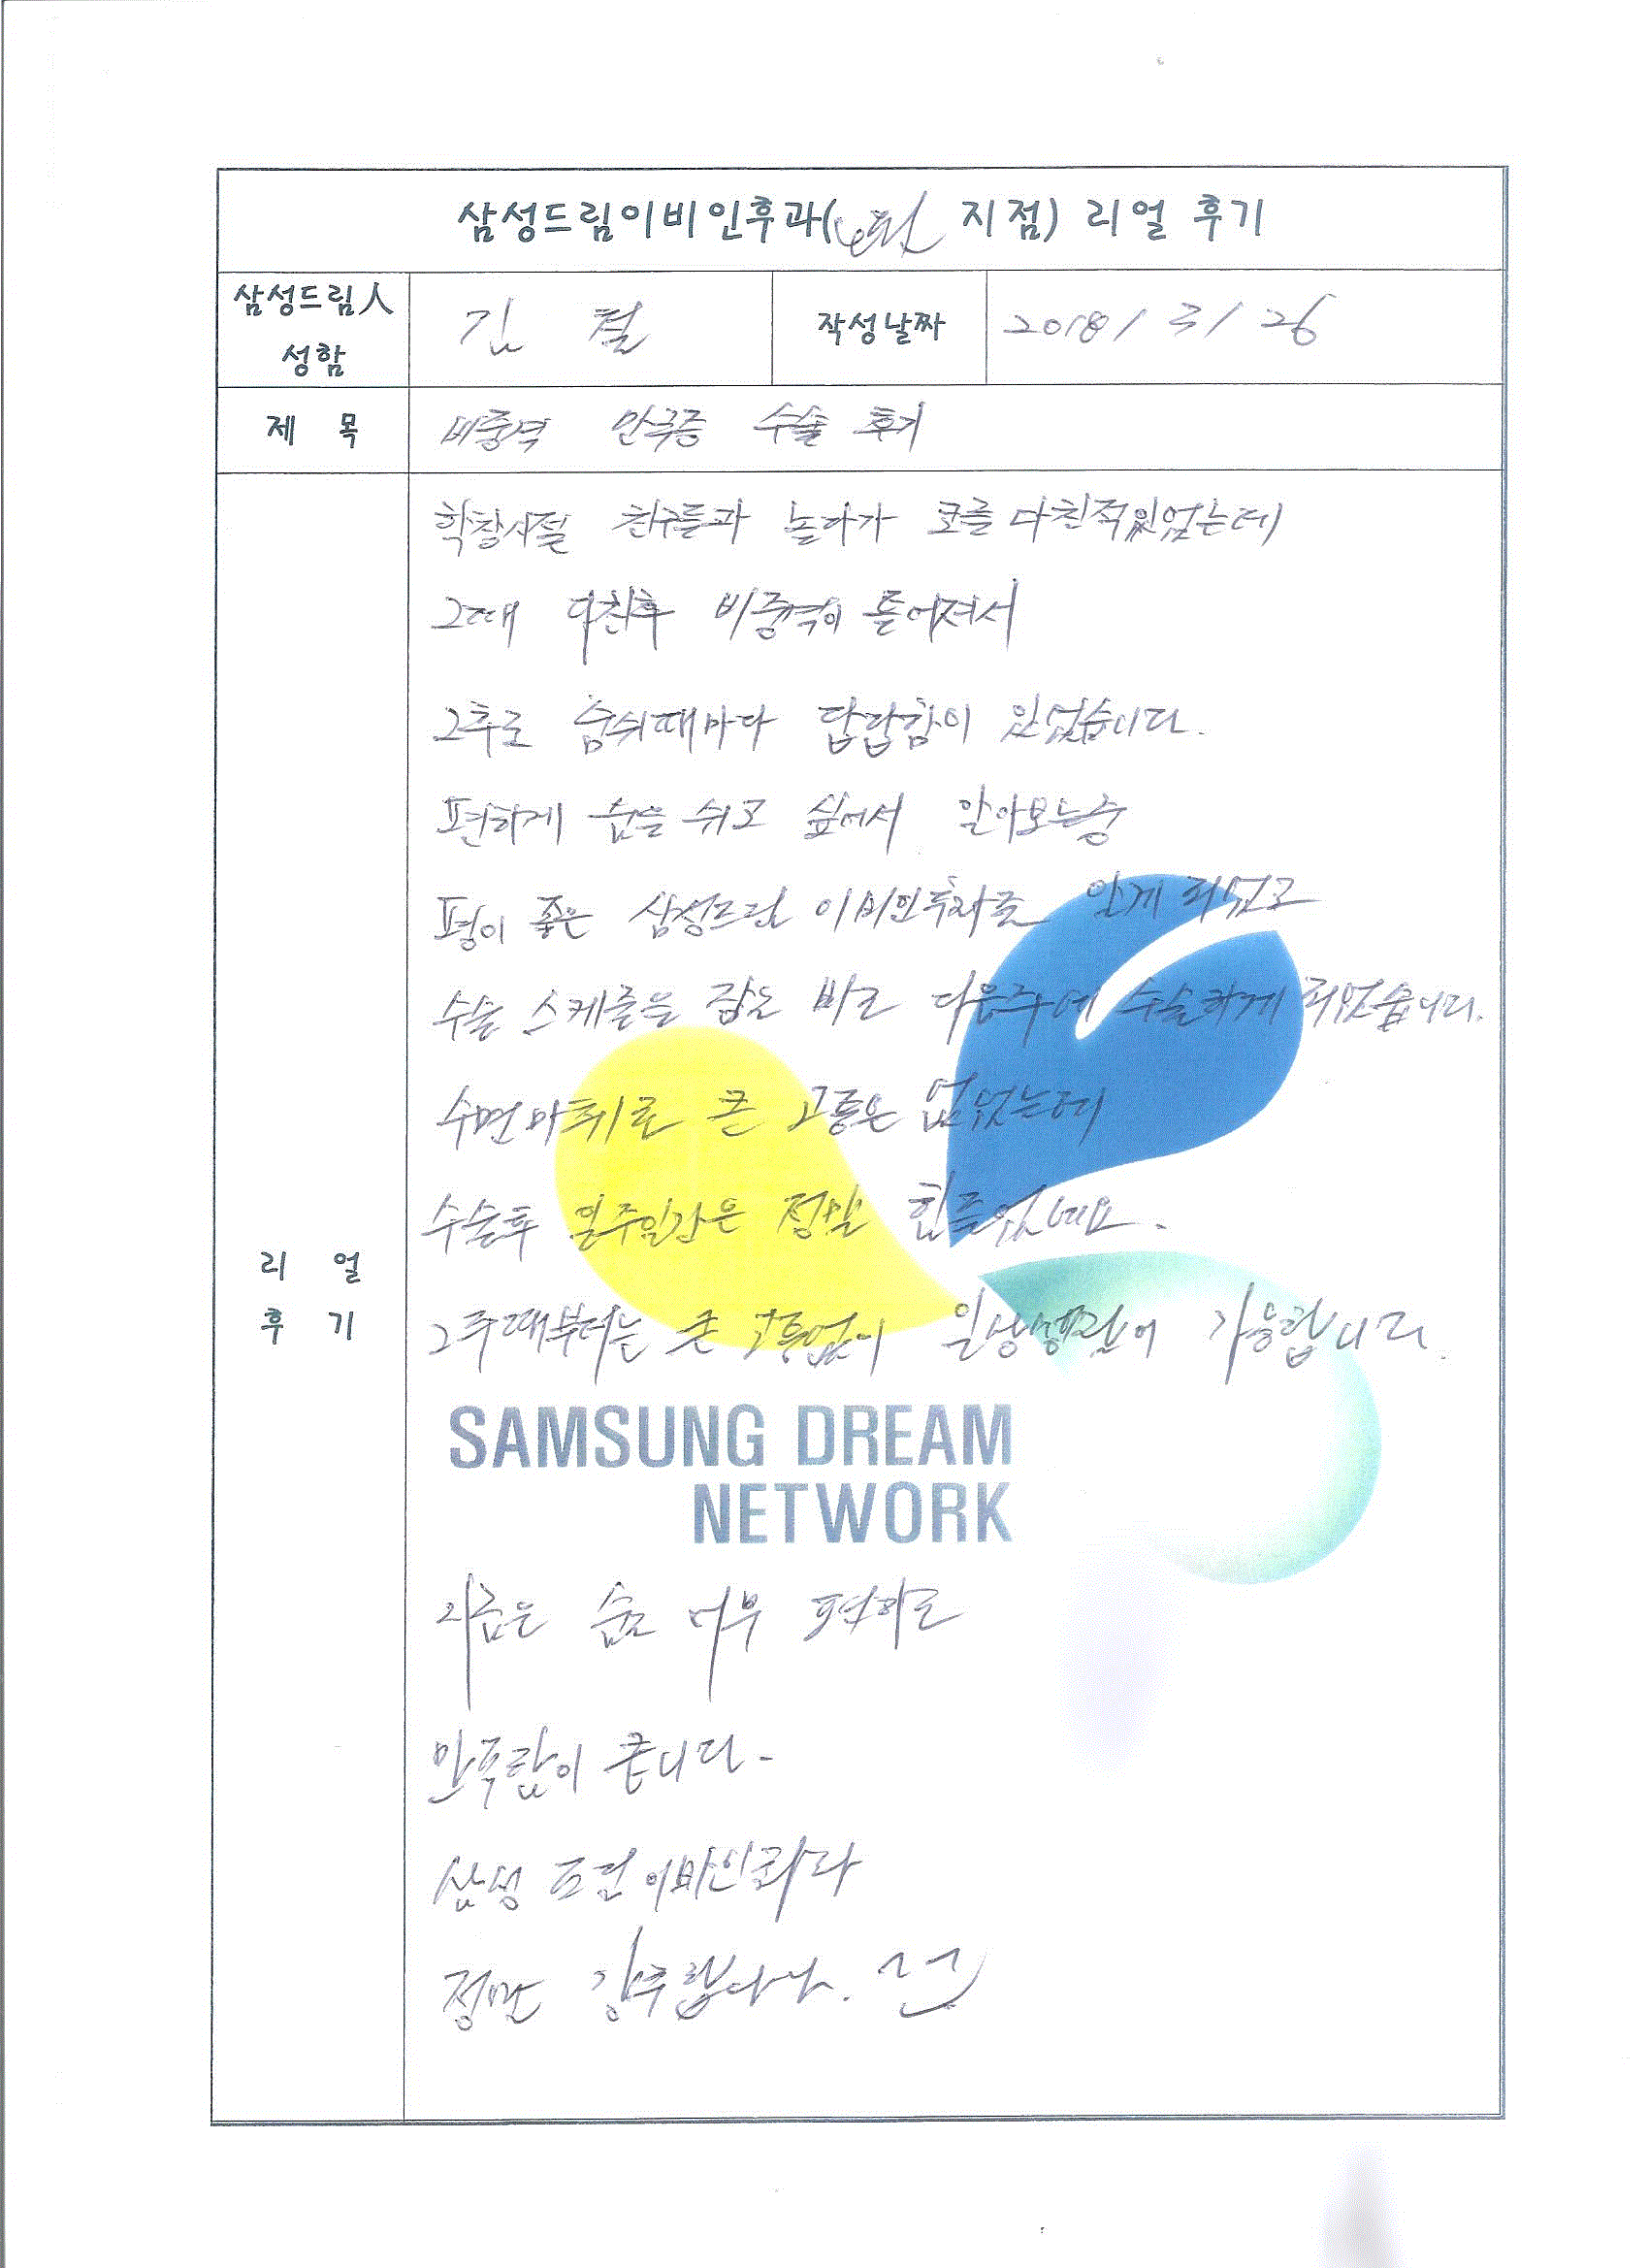 삼성드림이비인후과( 지점) 리얼 후기
삼성드림人
성함
김 철
작성날짜
2018/3/26
제 목
비중격 만곡증 수술 후기
리 얼
후 기
학창시절 친구들과 놀다가 코를 다친적있었는데
그때 다친후 비중격이 틀어져서
그후로 숨쉬때마다 답답함이 있었습니다.
편하게 숨을 쉬고 싶어서 알아보는중
평이 좋은 삼성드림 이비인후과를 알게 되었고
수술 스케줄을 잡고 바로 다음주에 수술하게 되었습니다.
수면마취로 큰 고통은 없었는데
수술후 일주일간은 정말 힘들었네요.
2주때부터는 큰 고통없이 일상생활이 가능합니다.
SAMSUNG DREAM
NETWORK
지금은 숨도 너무 편하고
만족감이 큽니다-
삼성 드림 이비인후과
정말 강추합니다.